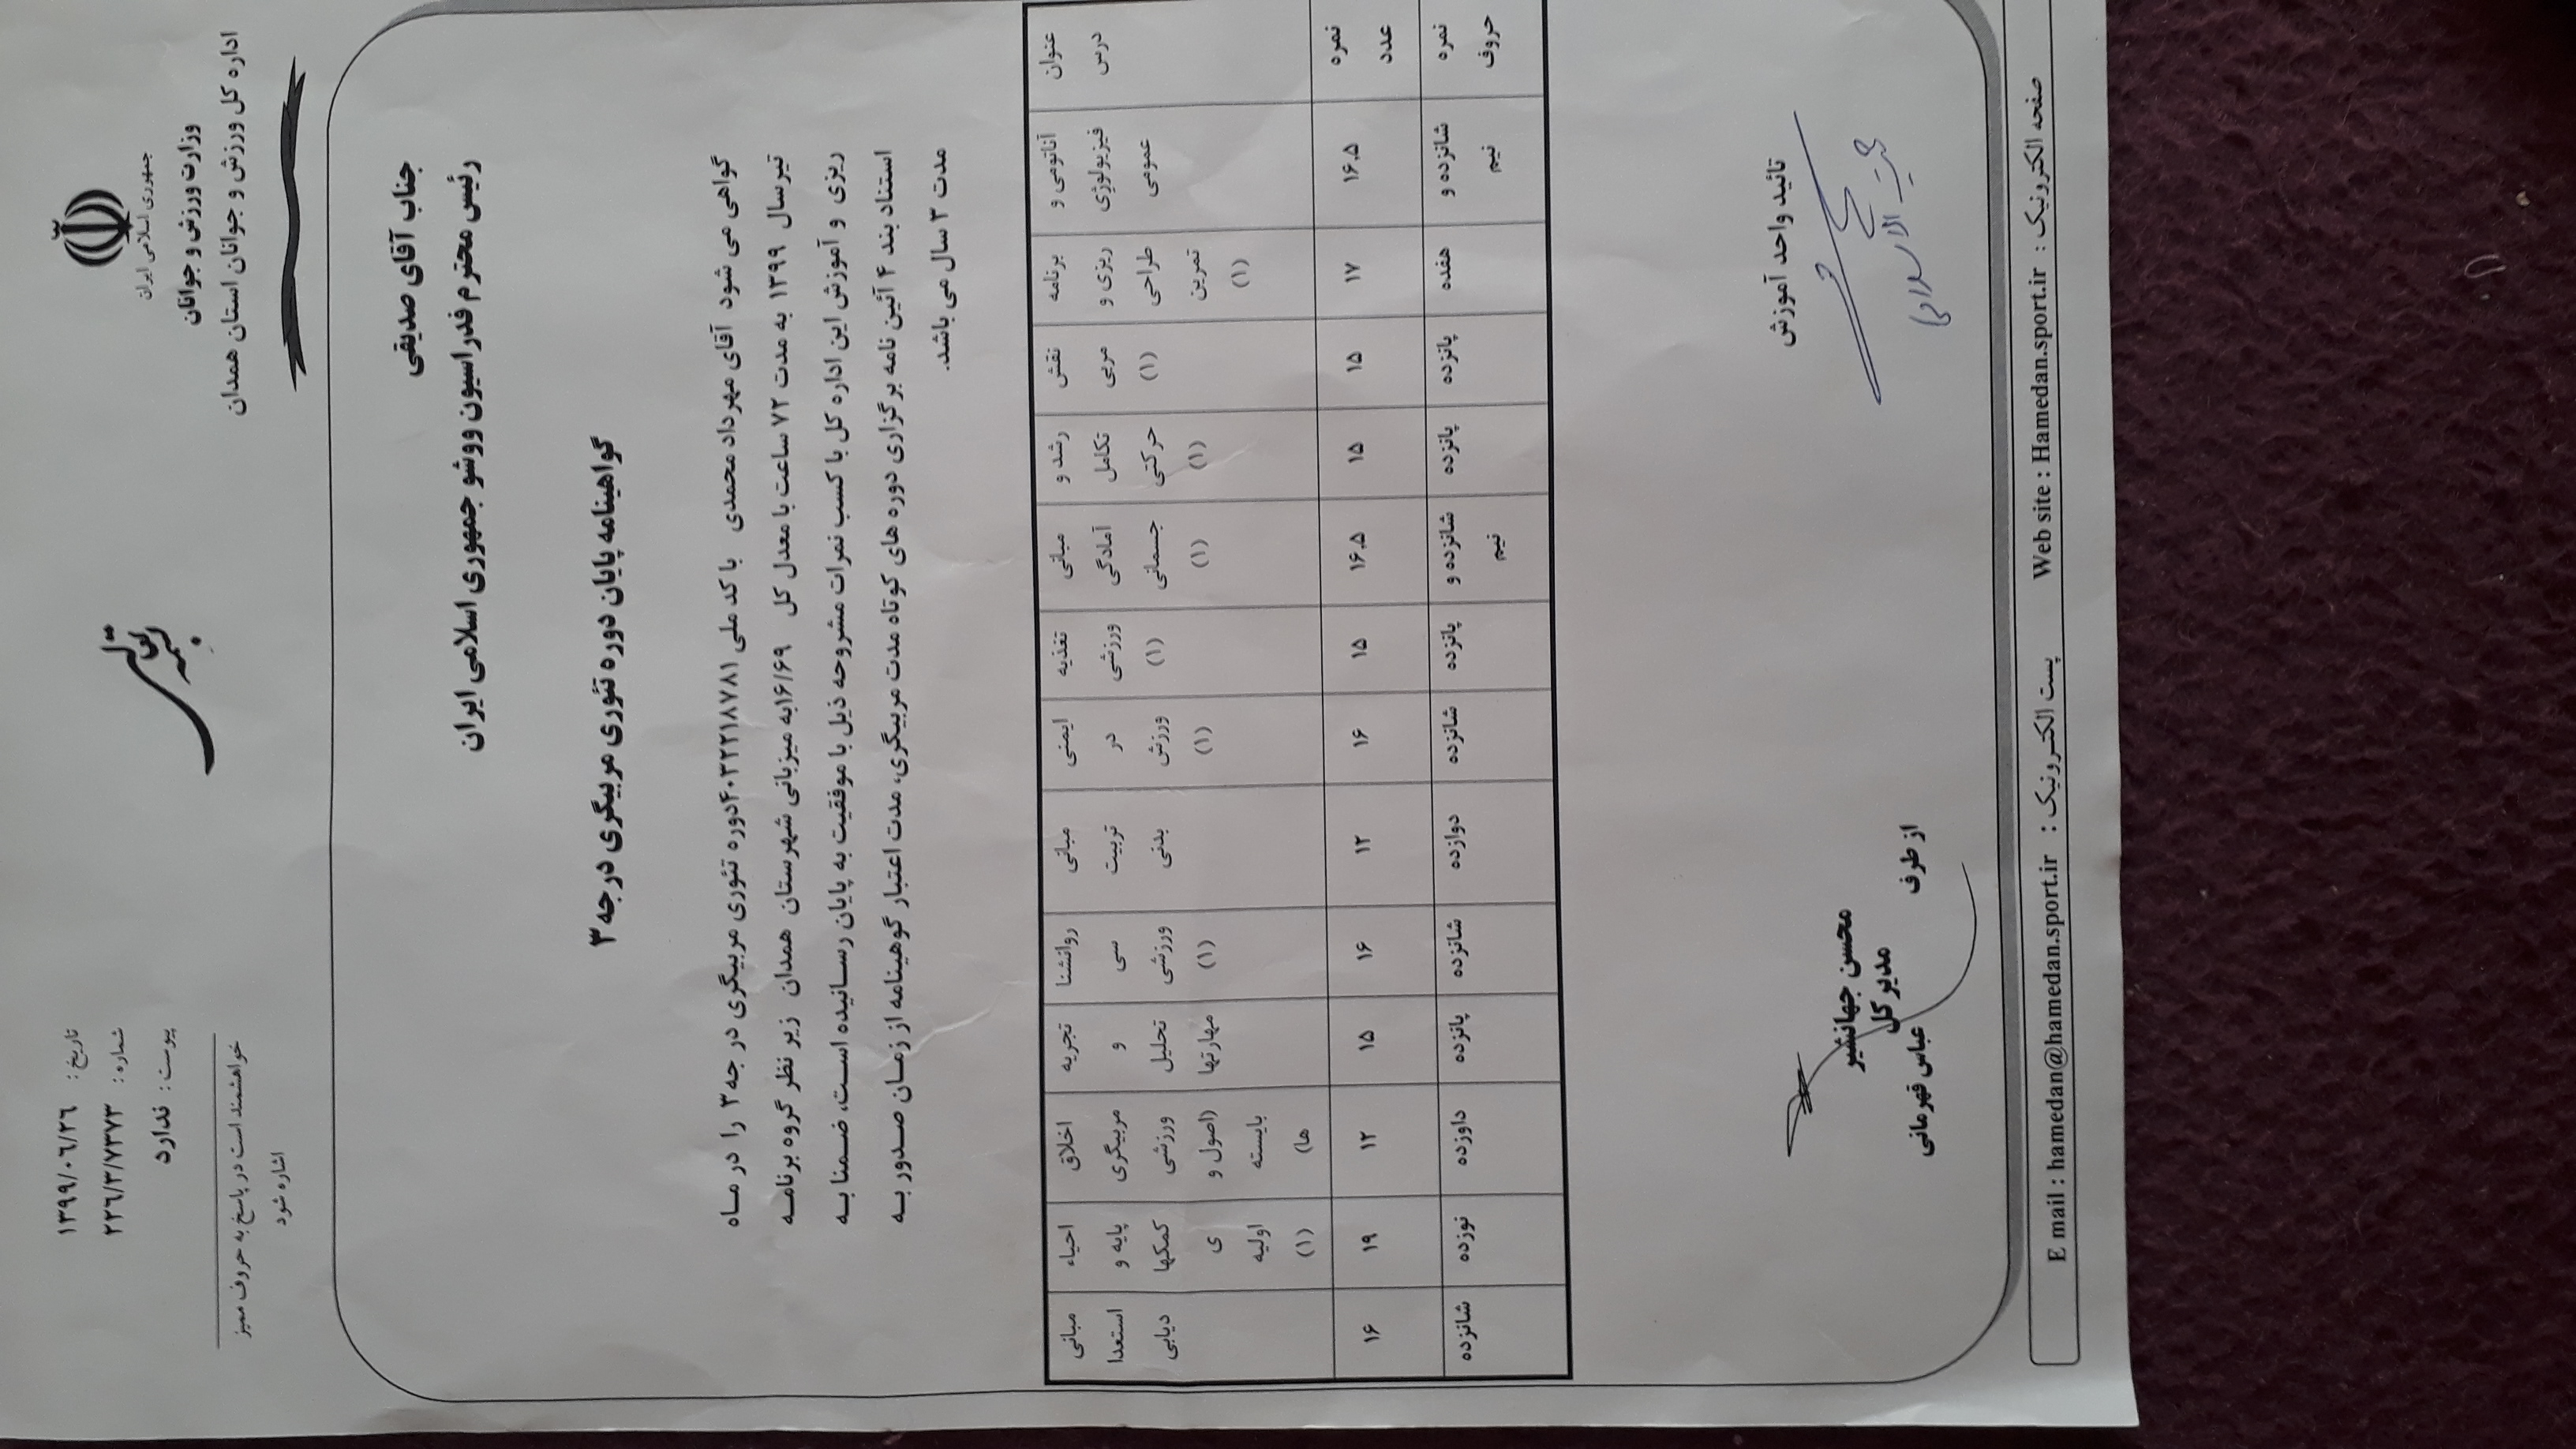 بسمه تعالی
جمهوری اسلامی ایران
وزارت ورزش و جوانان
اداره کل ورزش و جوانان استان همدان
تاریخ : ۱۳۹۹/۰۶/۲۶
شماره : ۲۲۶/۳/۷۳۷۳
پیوست : ندارد
خواهشمند است در پاسخ به حروف ممیز
اشاره شود
جناب آقای صدیقی
رئیس محترم فدراسیون ووشو جمهوری اسلامی ایران
گواهینامه پایان دوره تئوری مربیگری درجه ۳
گواهی می شود آقای مهرداد محمدی با کد ملی ۴۰۳۲۲۱۸۷۸۱دوره تئوری مربیگری درجه ۳ را در ماه
تیرسال ۱۳۹۹ به مدت ۷۲ ساعت با معدل کل ۱۶/۶۹به میزبانی شهرستان همدان زیر نظر گروه برنامه
ریزی و آموزش این اداره کل با کسب نمرات مشروحه ذیل با موفقیت به پایان رسانیده است، ضمنا به
استناد بند ۴ آئین نامه برگزاری دوره های کوتاه مدت مربیگری، مدت اعتبار گوهینامه از زمان صدور به
مدت ۳ سال می باشد.
عنوان درس | آناتومی و فیزیولوژی عمومی | برنامه ریزی و طراحی تمرین (۱) | نقش مربی (۱) | رشد و تکامل حرکتی (۱) | مبانی آمادگی جسمانی (۱) | تغذیه ورزشی (۱) | ایمنی در ورزش (۱) | مبانی تربیت بدنی | روانشنا سی ورزشی (۱) | تجزیه و تحلیل مهارتها | اخلاق مربیگری ورزشی (اصول و بایسته ها) | احیاء پایه و کمکها ی اولیه (۱) | مبانی استعدا دیابی
نمره عدد | ۱۶.۵ | ۱۷ | ۱۵ | ۱۵ | ۱۶.۵ | ۱۵ | ۱۶ | ۱۲ | ۱۶ | ۱۵ | ۱۲ | ۱۹ | ۱۶
نمره حروف | شانزده و نیم | هفده | پانزده | پانزده | شانزده و نیم | پانزده | شانزده | دوازده | شانزده | پانزده | داوزده | نوزده | شانزده
تائید واحد آموزش
محسن جهانشیر
مدیر کل
از طرف عباس قهرمانی
صفحه الکترونیک : Web site : Hamedan.sport.ir پست الکترونیک : E mail : hamedan@hamedan.sport.ir